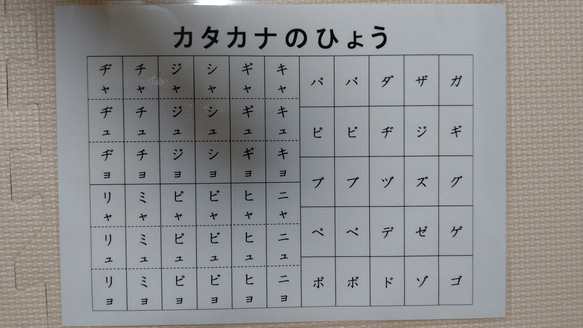 カタカナのひょう
ガギグゲゴ
ザジズゼゾ
ダヂヅデド
バビブベボ
パピプペポ
キャキュキョ
ギャギュギョ
シャシュショ
ジャジュジョ
チャチュチョ
ヂャヂュヂョ
ニャニュニョ
ヒャヒュヒョ
ビャビュビョ
ピャピュピョ
ミャミュミョ
リャリュリョ